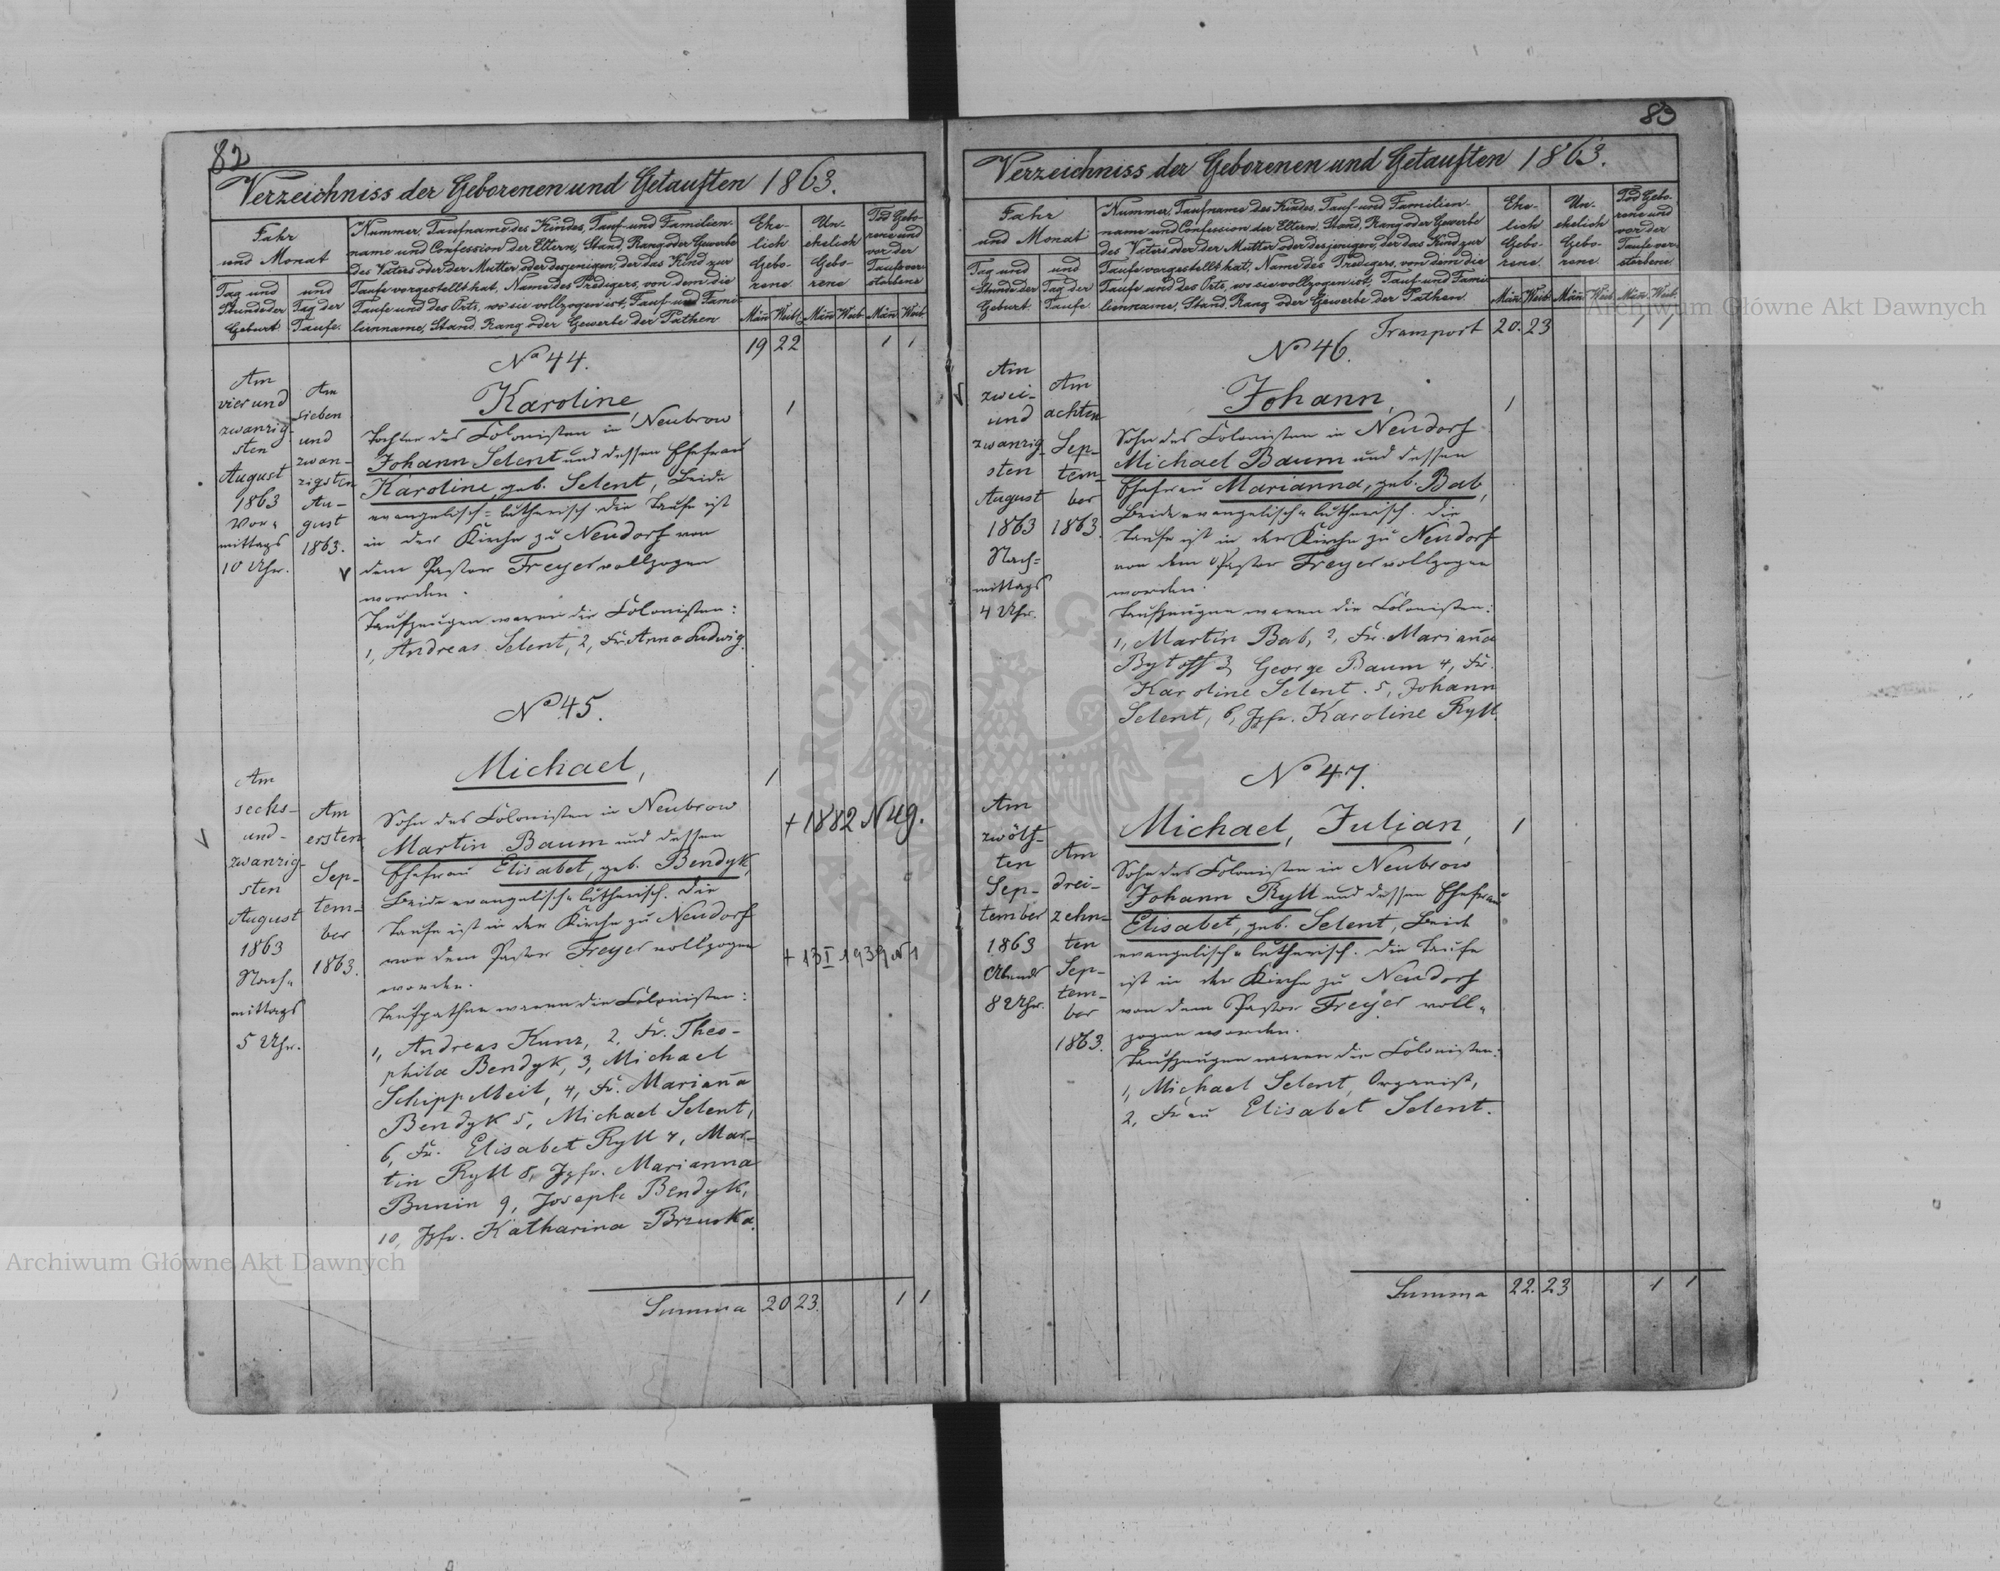 82
Verzeichniss der Geborenen und Getauften 1863.
Jahr
und Monat
Tag und
Stunde der
Geburt.
und
Tag der
Taufe.
Nummer, Taufname des Kindes, Tauf- und Familien-
name und Confession der Eltern, Stand, Rang oder Gewerbe
des Vaters oder der Mutter oder desjenigen, der das Kind zur
Taufe vorgestellt hat, Name des Predigers, von dem die
Taufe und des Orts, wo sie vollzogen ist, Tauf- und Fami-
lienname, Stand, Rang oder Gewerbe der Pathen
Ehe-
lich
Gebo-
rene.
Un-
ehelich
Gebo-
rene
Tod Gebo-
rene und
vor der
Taufe ver-
storbene
Män̄ Weibl. Män̄ Weib Män̄ Weib.
19 22 1 1
No 44.
Am
vier und
zwanzig-
sten
August
1863
Vor-
mittags
10 Uhr.
Am
sieben
und
zwan-
zigsten
Au-
gust
1863.
Karoline,
Tochter des Colonisten in Neubrow
Johann Selent und dessen Ehefrau
Karoline, geb. Selent, Beide
evangelisch-lutherisch. Die Taufe ist
in der Kirche zu Neudorf von
dem Pastor Freyer vollzogen
worden.
Taufzeugen waren die Colonisten:
1, Andreas Selent, 2, Fr. Anna Ludwig.
1
No 45.
Am
sechs-
und-
zwanzig-
sten
August
1863
Nach-
mittags
5 Uhr.
Am
ersten
Sep-
tem-
ber
1863.
Michael,
Sohn des Colonisten in Neubrow
Martin Baum und dessen
Ehefrau Elisabet, geb. Bendyk,
Beide evangelisch-lutherisch. Die
Taufe ist in der Kirche zu Neudorf
von dem Pastor Freyer vollzogen
worden.
Taufpathen waren die Colonisten:
1, Andreas Kunz, 2, Fr. Theo-
phila Bendyk, 3, Michael
Schippelbeit, 4, Fr. Marian̄a
Bendyk 5, Michael Selent,
6, Fr. Elisabet Ryll 7, Mar-
tin Ryll 8, Jgfr. Marianna
Bunin 9, Joseph Bendyk,
10, Jgfr. Katharina Bzuska.
1
+ 1882 N 49.
+ 13 I 1939 N 1
Summa 20 23. 1 1
83
Verzeichniss der Geborenen und Getauften 1863.
Jahr
und Monat
Tag und
Stunde der
Geburt.
und
Tag der
Taufe
Nummer, Taufname des Kindes, Tauf- und Familien-
name und Confession der Eltern, Stand, Rang oder Gewerbe
des Vaters oder der Mutter oder desjenigen, der das Kind zur
Taufe vorgestellt hat, Name des Predigers, von dem die
Taufe und des Orts, wo sie vollzogen ist, Tauf- und Fami-
lienname, Stand, Rang oder Gewerbe der Pathen.
Ehe-
lich
Gebo-
rene.
Un-
ehelich
Gebo-
rene.
Tod Gebo-
rene und
vor der
Taufe ver-
storbene.
Män̄ Weib. Män̄ Weib. Män̄ Weib.
Transport 20. 23 1 1
No 46.
Am
zwei-
und
zwanzig-
sten
August
1863
Nach-
mittags
4 Uhr.
Am
achten
Sep-
tem-
ber
1863.
Johann,
Sohn des Colonisten in Neudorf
Michael Baum und dessen
Ehefrau Marianna, geb. Bab,
Beide evangelisch-lutherisch. Die
Taufe ist in der Kirche zu Neudorf
von dem Pastor Freyer vollzogen
worden.
Taufzeugen waren die Colonisten:
1, Martin Bab, 2, Fr. Marian̄a
Bytoff 3, George Baum 4, Fr.
Karoline Selent. 5, Johann
Selent, 6, Jgfr. Karoline Ryll.
1
No 47.
Am
zwölf-
ten
Sep-
tember
1863
Abends
8 Uhr.
Am
drei-
zehn-
ten
Sep-
tem-
ber
1863.
Michael, Julian,
Sohn des Colonisten in Neubrow
Johann Ryll und dessen Ehefrau
Elisabet, geb. Selent, Beide
evangelisch-lutherisch. Die Taufe
ist in der Kirche zu Neudorf
von dem Pastor Freyer voll-
zogen worden.
Taufzeugen waren die Colonisten:
1, Michael Selent, Organist,
2, Frau Elisabet Selent.
1
Summa 22. 23 1 1
Archiwum Główne Akt Dawnych
Archiwum Główne Akt Dawnych
ARCHIWUM GŁÓWNE AKT DAWNYCH